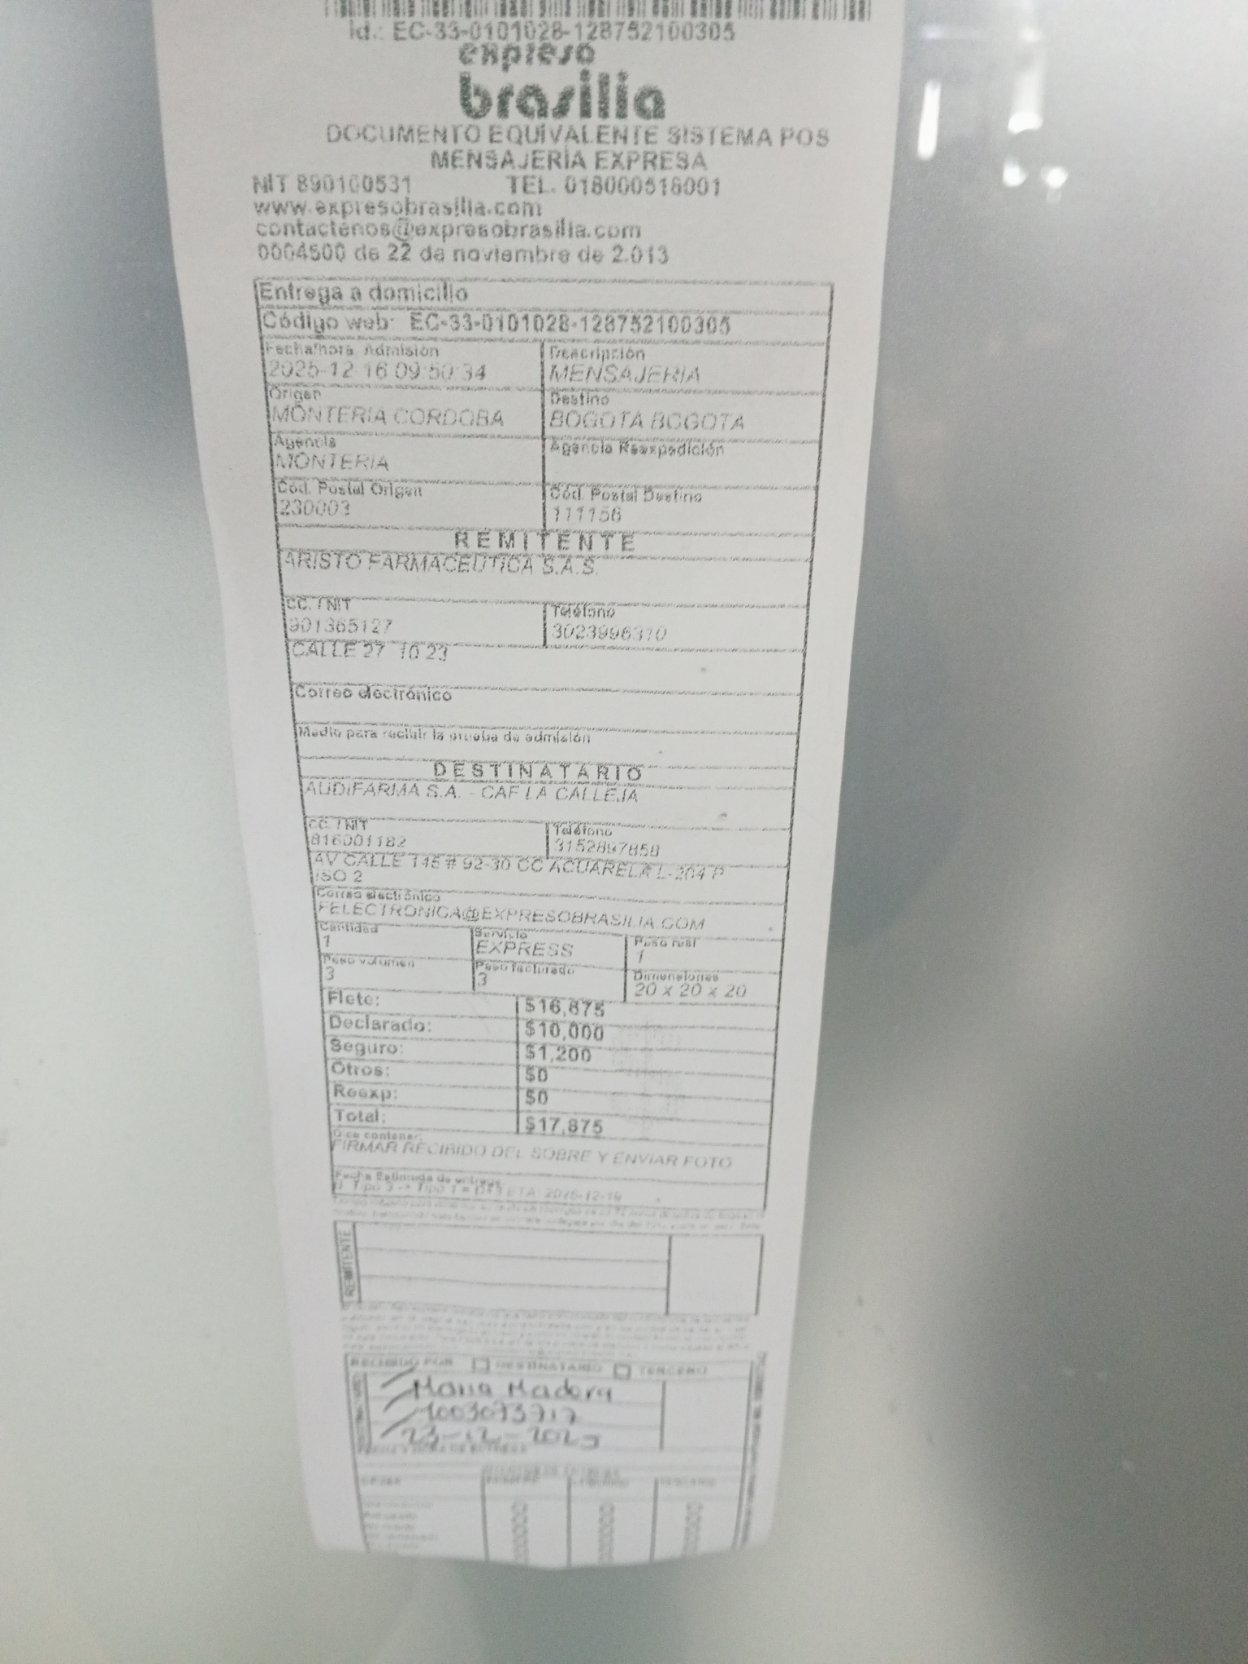 Id.: EC-33-0101028-128752100305
expreso
brasilia
DOCUMENTO EQUIVALENTE SISTEMA POS
MENSAJERÍA EXPRESA
NIT 890100531 TEL. 018000518001
www.expresobrasilia.com
contactenos@expresobrasilia.com
0004500 de 22 de noviembre de 2.013
Entrega a domicilio
Código web: EC-33-0101028-128752100305
Fecha/hora Admisión Descripción
2025-12-16 09:50:34 MENSAJERIA
Origen Destino
MONTERIA CORDOBA BOGOTA BOGOTA
Agencia Agencia Reexpedición
MONTERIA
Cód. Postal Origen Cód. Postal Destino
230003 111156
REMITENTE
ARISTO FARMACEUTICA S.A.S.
CC. / NIT Teléfono
901365127 3023996310
CALLE 27 10 23
Correo electrónico
Medio para recibir la prueba de admisión
DESTINATARIO
AUDIFARMA S.A. - CAF LA CALLEJA
CC. / NIT Teléfono
816001182 3152897858
AV CALLE 145 # 92-30 CC ACUARELA L-204 P
ISO 2
Correo electrónico
FELECTRONICA@EXPRESOBRASILIA.COM
Cantidad Servicio Peso real
1 EXPRESS 1
Peso volumen Peso facturado Dimensiones
3 3 20 x 20 x 20
Flete: $16,675
Declarado: $10,000
Seguro: $1,200
Otros: $0
Reexp: $0
Total: $17,875
Dice contener:
FIRMAR RECIBIDO DEL SOBRE Y ENVIAR FOTO
Fecha Estimada de entrega
ETA: 2025-12-19
REMITENTE
RECIBIDO POR DESTINATARIO TERCERO
Maria Madera
1003073717
23-12-2025